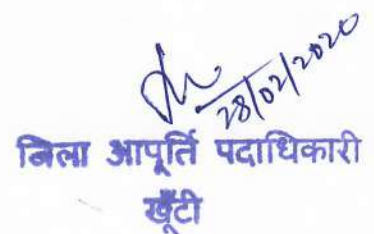 28/02/2020
जिला आपूर्ति पदाधिकारी
खूँटी